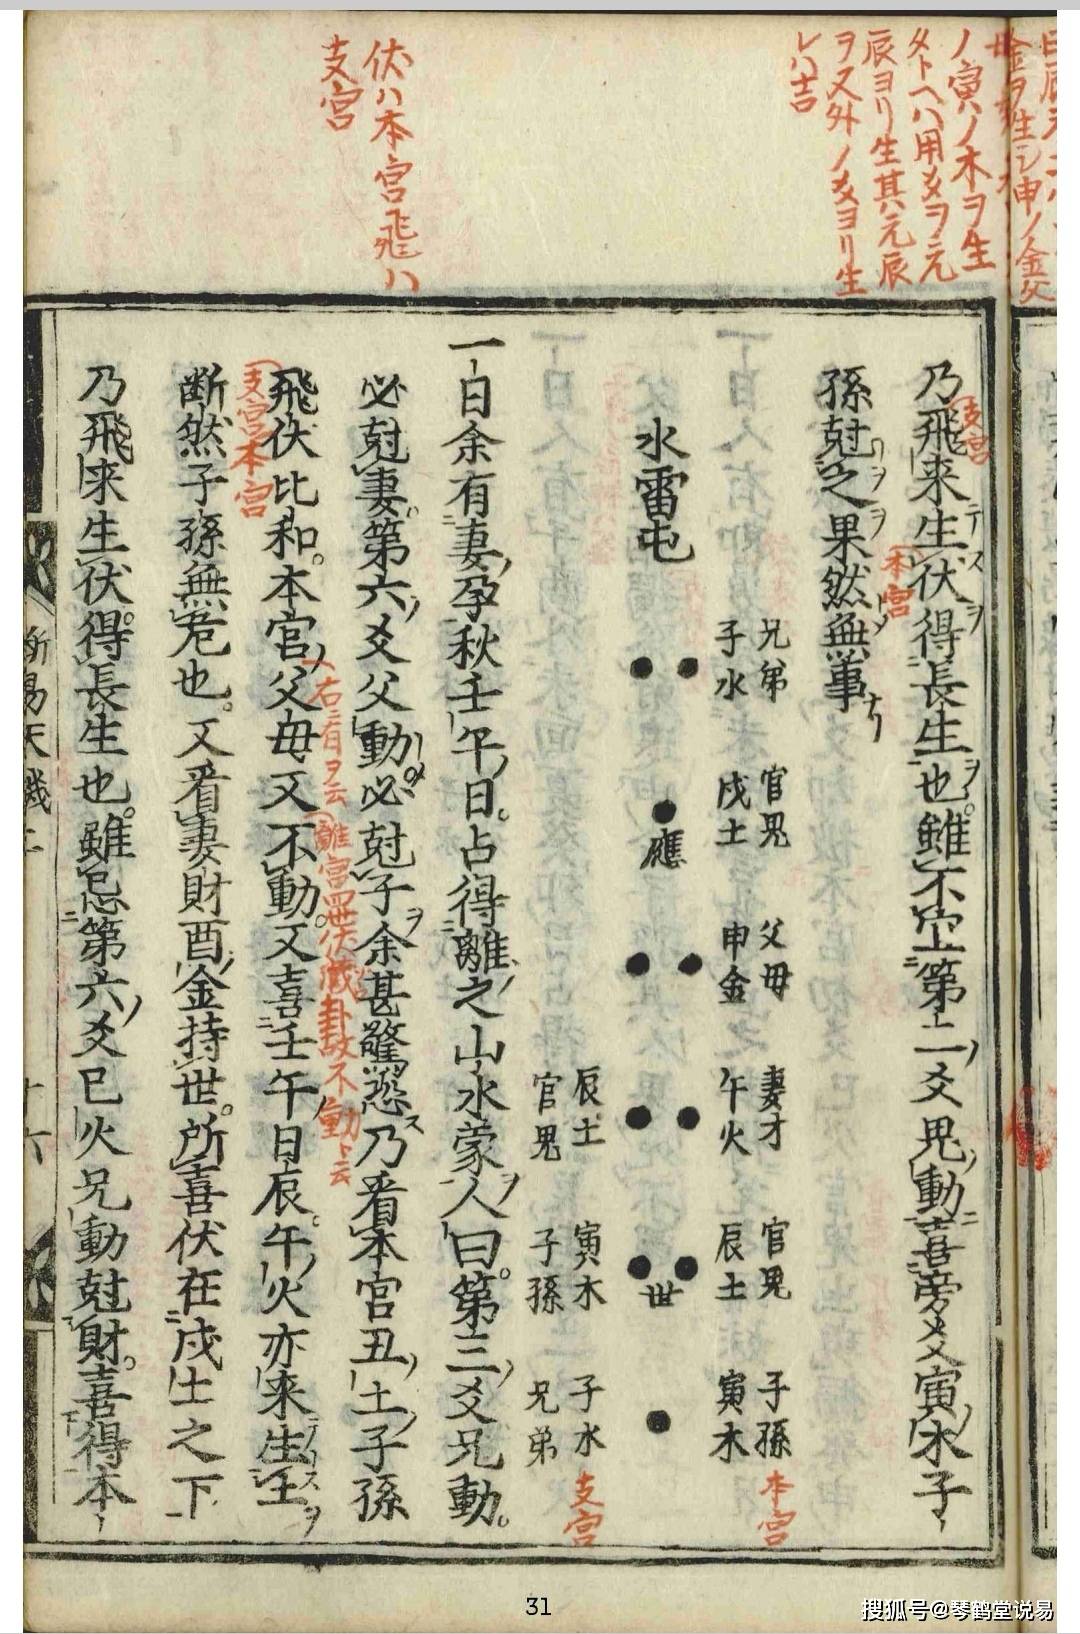 伏ハ本宮飛ハ
支宮
ノ寅ハノ木ヲ生
タトヘハ用爻ヲ元
辰ヨリ生其元辰
ヲ又外ノ爻ヨリ生
レハ吉
乃飛来生伏得長生也。雖不空第二爻鬼動喜旁爻寅木子
支宮
本宮
孫尅之果然無事
水雷屯
兄弟 子水
官鬼 戌土
應
父母 申金
妻才 午火
官鬼 辰土
世
子孫 寅木
本宮
辰土 官鬼
寅木 子孫
子水 兄弟
支宮
一日余有妻孕秋壬午日。占得離之山水蒙人曰。第三爻兄動。
必尅妻。第六爻父動。必尅子余甚驚恐乃看本宮丑土子孫
飛伏比和。本宮父母又不動。又喜壬午日辰午火亦来生土
支宮本宮
離宮四世伏藏卦故不動ト云
断然子孫無危也。又看妻財酉金持世。所喜伏在戌土之下
乃飛来生伏得。長生也。雖忌第六爻巳火兄動尅財。喜得本
十六
31
搜狐号@琴鹤堂说易